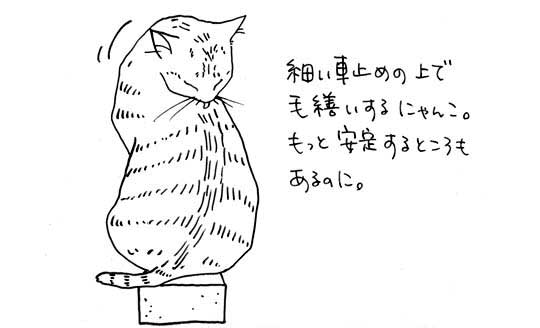 細い車止めの上で
毛繕いするにゃんこ。
もっと安定するところも
あるのに。